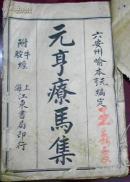 六安州喻本元編定
元亨療馬集
附牛駝經
上海江東書局印行